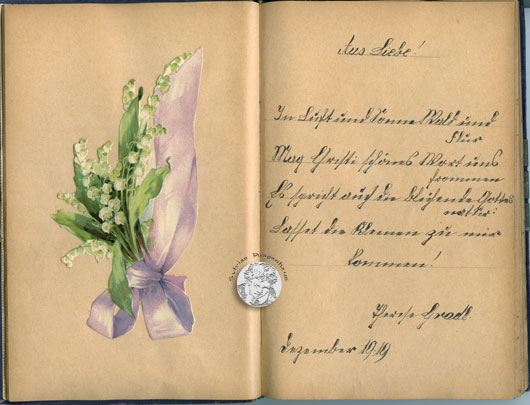 Aus Liebe!
In Luft und Sonne Wald und
Flur
Mag Christi schönes Wort uns
frommen
Es spricht auch die blühende Gottes
natur:
Lasset die Kleinen zu mir
kommen!
Therese
Dezember 1919
Sylvias Puppenhaus